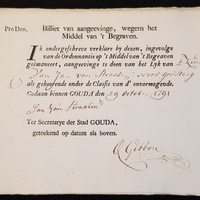 Pro Deo,
Billiet van aangeevinge, wegens het
Middel van 't Begraven.
Ik ondergeschreve verklare by dezen, ingevolge
van de Ordonnantie op 't Middel van 't Begraven
geëmaneert, aangeevinge te doen van het Lyk van
Jan van
als gehoorende onder de Classe van d' onvermogende.
Gedaan binnen GOUDA den 29 October 1791
Jan Van
Ter Secretarye der Stad GOUDA,
geteekend op datum als boven.